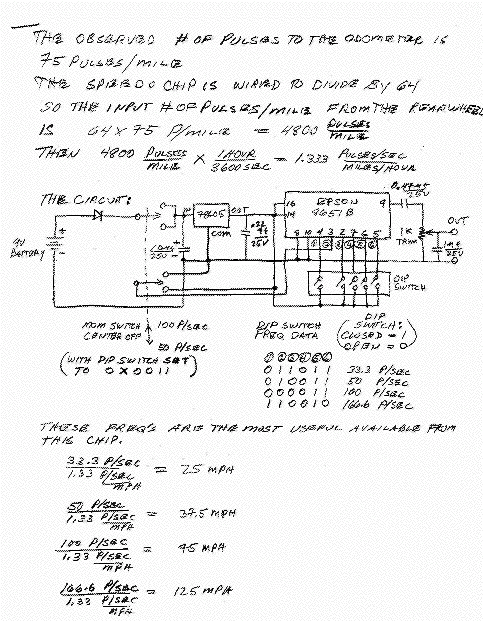 THE OBSERVED # OF PULSES TO THE ODOMETER IS
75 PULSES/MILE
THE SPEEDO CHIP IS WIRED TO DIVIDE BY 64
SO THE INPUT # OF PULSES/MILE FROM THE REARWHEEL
IS 64 X 75 P/MILE = 4800 PULSES/MILE
THEN 4800 PULSES/MILE X 1 HOUR/3600 SEC = 1.333 PULSES/SEC/MILES/HOUR
THE CIRCUIT:
9V
BATTERY
+
7805
OUT
COM
25V
25V
16
14
EPSON
8651B
9
8 10 4 3 2 1 7 6 5
25V
1K
TRIM
OUT
25V
DIP
SWITCH
MOM SWITCH
CENTER OFF
100 P/SEC
50 P/SEC
(WITH DIP SWITCH SET
TO 0X0011)
DIP SWITCH
FREQ DATA
DIP
SWITCH:
CLOSED = 1
OPEN = 0
011011 33.3 P/SEC
010011 50 P/SEC
000011 100 P/SEC
110010 166.6 P/SEC
THESE FREQ'S ARE THE MOST USEFUL AVAILABLE FROM
THIS CHIP.
33.3 P/SEC
1.33 P/SEC/MPH = 25 MPH
50 P/SEC
1.33 P/SEC/MPH = 37.5 MPH
100 P/SEC
1.33 P/SEC/MPH = 95 MPH
166.6 P/SEC
1.33 P/SEC/MPH = 125 MPH